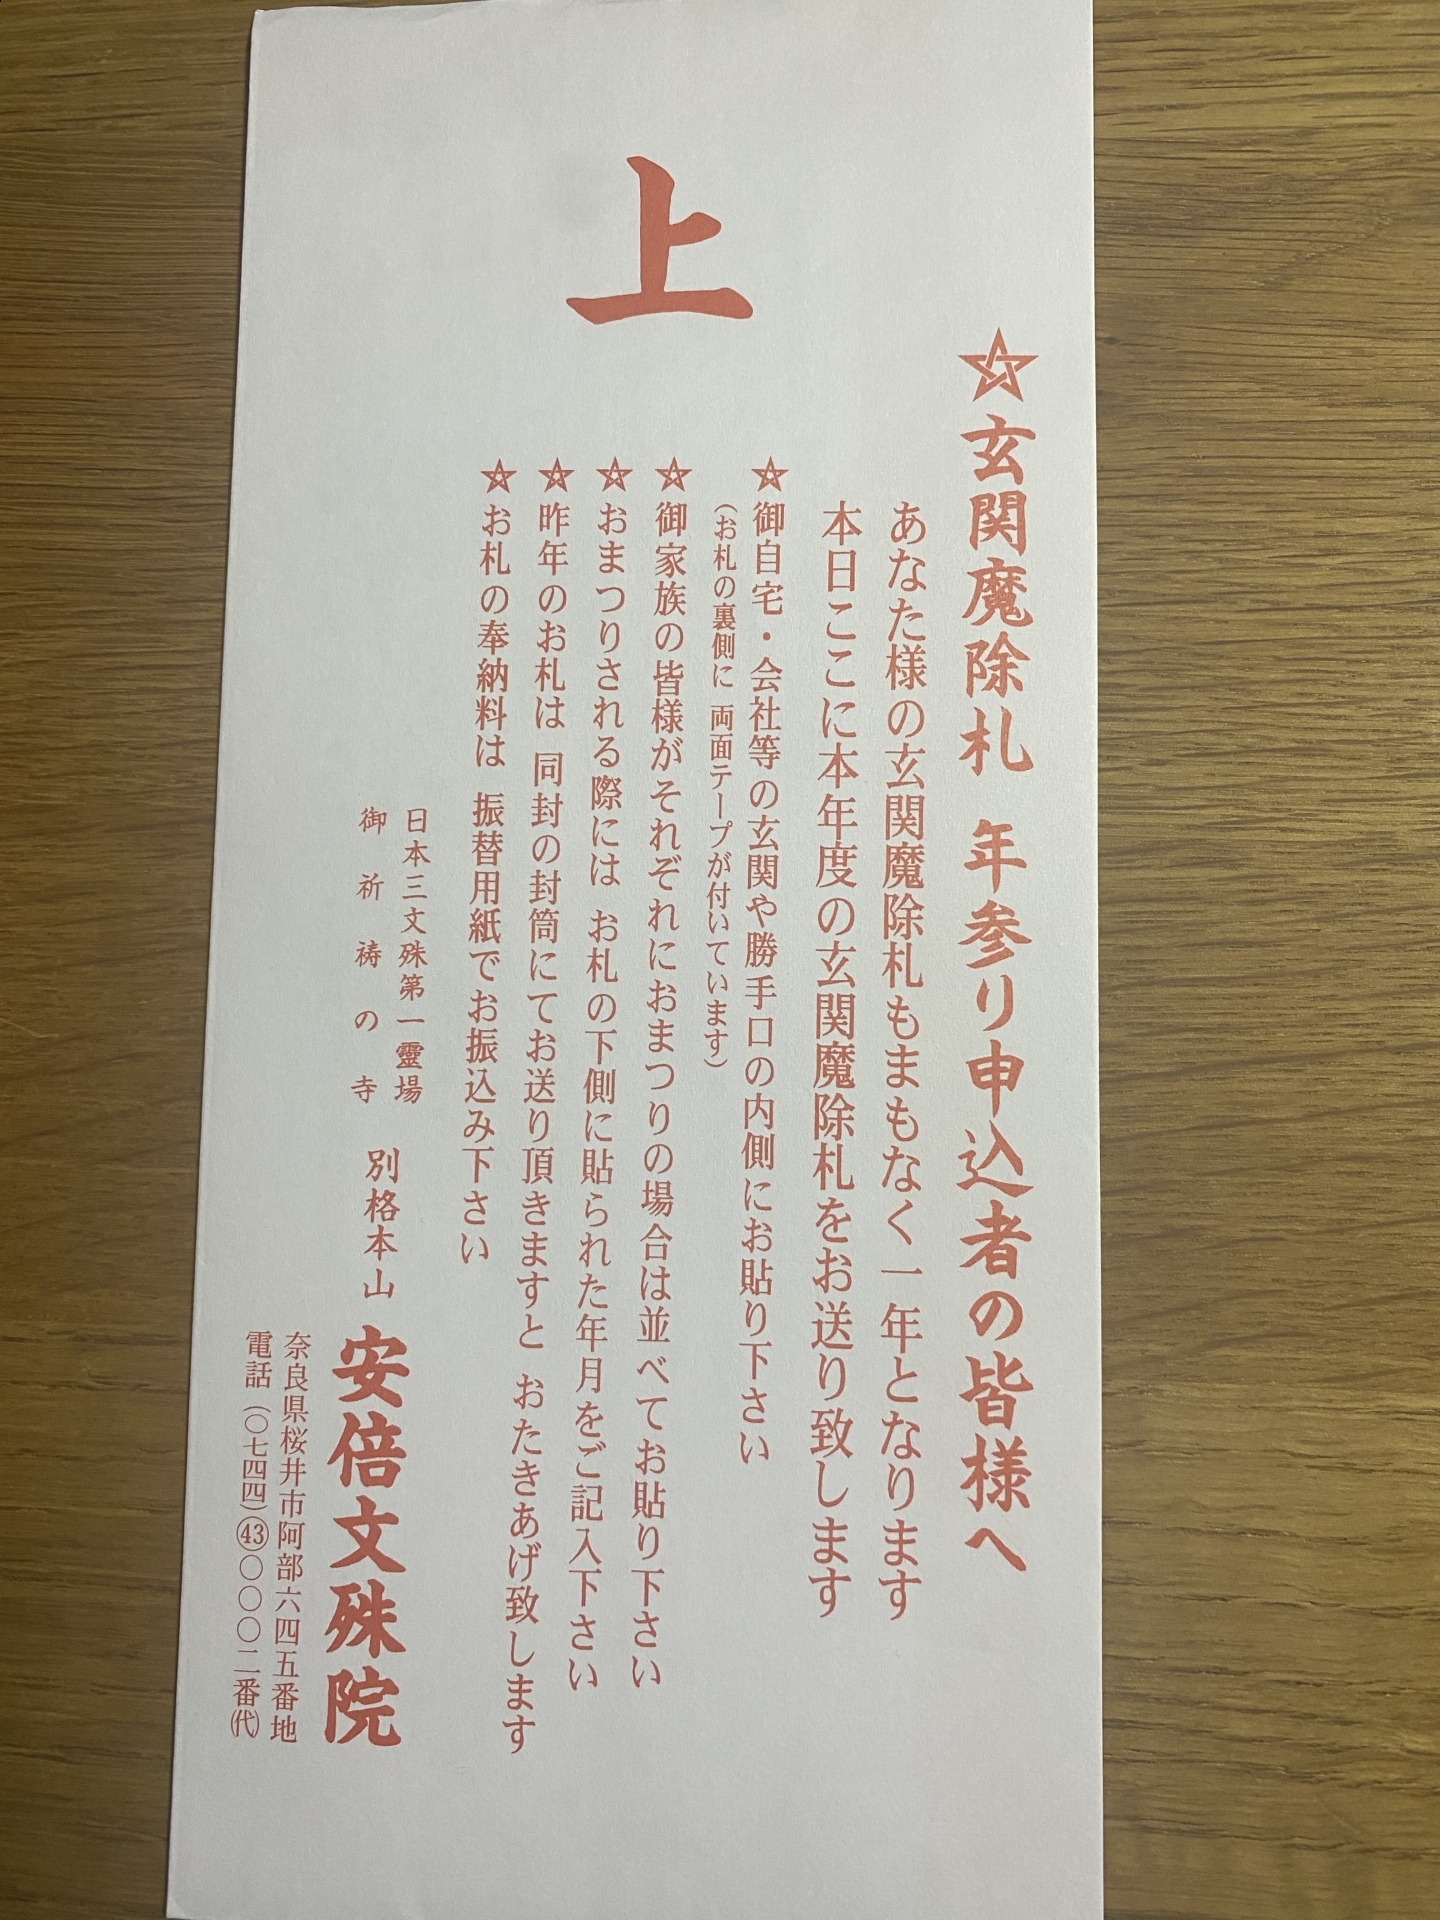 上
☆玄関魔除札 年参り申込者の皆様へ
あなた様の玄関魔除札もまもなく一年となります
本日ここに本年度の玄関魔除札をお送り致します
☆御自宅・会社等の玄関や勝手口の内側にお貼り下さい
（お札の裏側に 両面テープが付いています）
☆御家族の皆様がそれぞれにおまつりの場合は並べてお貼り下さい
☆おまつりされる際には お札の下側に貼られた年月をご記入下さい
☆昨年のお札は 同封の封筒にてお送り頂きますと おたきあげ致します
☆お札の奉納料は 振替用紙でお振込み下さい
日本三文殊第一靈場
御祈祷の寺
別格本山 安倍文殊院
奈良県桜井市阿部六四五番地
電話（〇七四四）㊸〇〇〇二番㈹